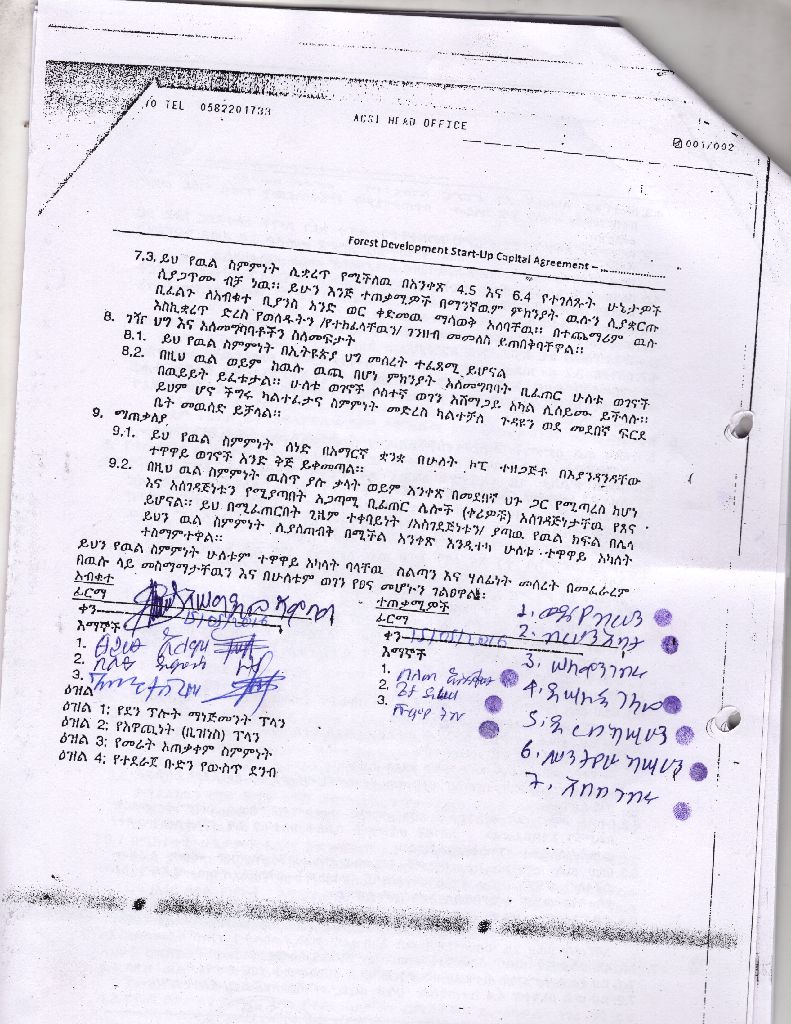 TO TEL 0582201733
ACSI HEAD OFFICE
001/002
Forest Development Start-Up Capital Agreement –
7.3. ይህ የዉል ስምምነት ሊቋረጥ የሚችለዉ በአንቀጽ 4.5 እና 6.4 የተገለጹት ሁኔታዎች
ሲያጋጥሙ ብቻ ነዉ፡፡ ይሁን እንጅ ተጠቃሚዎች በማንኛዉም ምክንያት ዉሉን ሲያቋርጡ
ቢፈልጉ ለአብቁተ ቢያንስ አንድ ወር ቀድመዉ ማሳወቅ አለባቸዉ፡፡ በተጨማሪም ዉሉ
እስኪቋረጥ ድረስ የወሰዱትን /የተከፈላቸዉን/ ገንዘብ መመለስ ይጠበቅባቸዋል፡፡
8. ገዥ ህግ እና አለመግባባቶችን ስለመፍታት
8.1. ይህ የዉል ስምምነት በኢትዮጵያ ህግ መሰረት ተፈጻሚ ይሆናል
8.2. በዚህ ዉል ወይም ከዉሉ ዉጪ በሆነ ምክንያት አለመግባባት ቢፈጠር ሁለቱ ወገኖች
በዉይይት ይፈቱታል፡፡ ሁለቱ ወገኖች ሶስተኛ ወገን አሸማጋይ አካል ሊሰይሙ ይችላሉ፡፡
ይህም ሆኖ ችግሩ ካልተፈታና ስምምነት መድረስ ካልተቻለ ጉዳዩን ወደ መደበኛ ፍርድ
ቤት መዉሰድ ይቻላል፡፡
9. ማጠቃለያ
9.1. ይህ የዉል ስምምነት ሰነድ በአማርኛ ቋንቋ በሁለት ኮፒ ተዘጋጅቶ በእያንዳንዳቸው
ተዋዋይ ወገኖች አንድ ቅጅ ይቀመጣል፡፡
9.2. በዚህ ዉል ስምምነት ዉስጥ ያሉ ቃላት ወይም አንቀጽ በመደበኛ ህጉ ጋር የሚጣረስ ከሆነ
እና አስገዳጅነቱን የሚያጣበት አጋጣሚ ቢፈጠር ሌሎች (ቀሪዎቹ) አስገዳጅነታቸዉ የጸና
ይሆናል፡፡ ይህ በሚፈጠርበት ጊዜም ተቀባይነት /አስገዳጅነቱን/ ያጣዉ የዉል ክፍል በሌላ
ይህን ዉል ስምምነት ሊያስጠብቅ በሚችል አንቀጽ እንዲተካ ሁለቱ ተዋዋይ አካላት
ተስማምተዋል፡፡
ይህን የዉል ስምምነት ሁለቱም ተዋዋይ አካላት ባላቸዉ ስልጣን እና ሃላፊነት መሰረት በመፈራረም
በዉሉ ላይ መስማማታቸዉን እና በሁለቱም ወገን የፀና መሆኑን ገልፀዋል፡
አብቁተ
ፊርማ
ቀን 15/05/2016
እማኞች
1.
2.
3.
ተጠቃሚዎች
ፊርማ
ቀን 15/05/2016
እማኞች
1.
2.
3.
1.
2.
3.
4.
5.
6.
7. አበበ
ዕዝል
ዕዝል 1: የደን ፕሎት ማነጅመንት ፕላን
ዕዝል 2: የአዋጪነት (ቢዝነስ) ፕላን
ዕዝል 3: የመሬት አጠቃቀም ስምምነት
ዕዝል 4: የተደራጀ ቡድን የውስጥ ደንብ